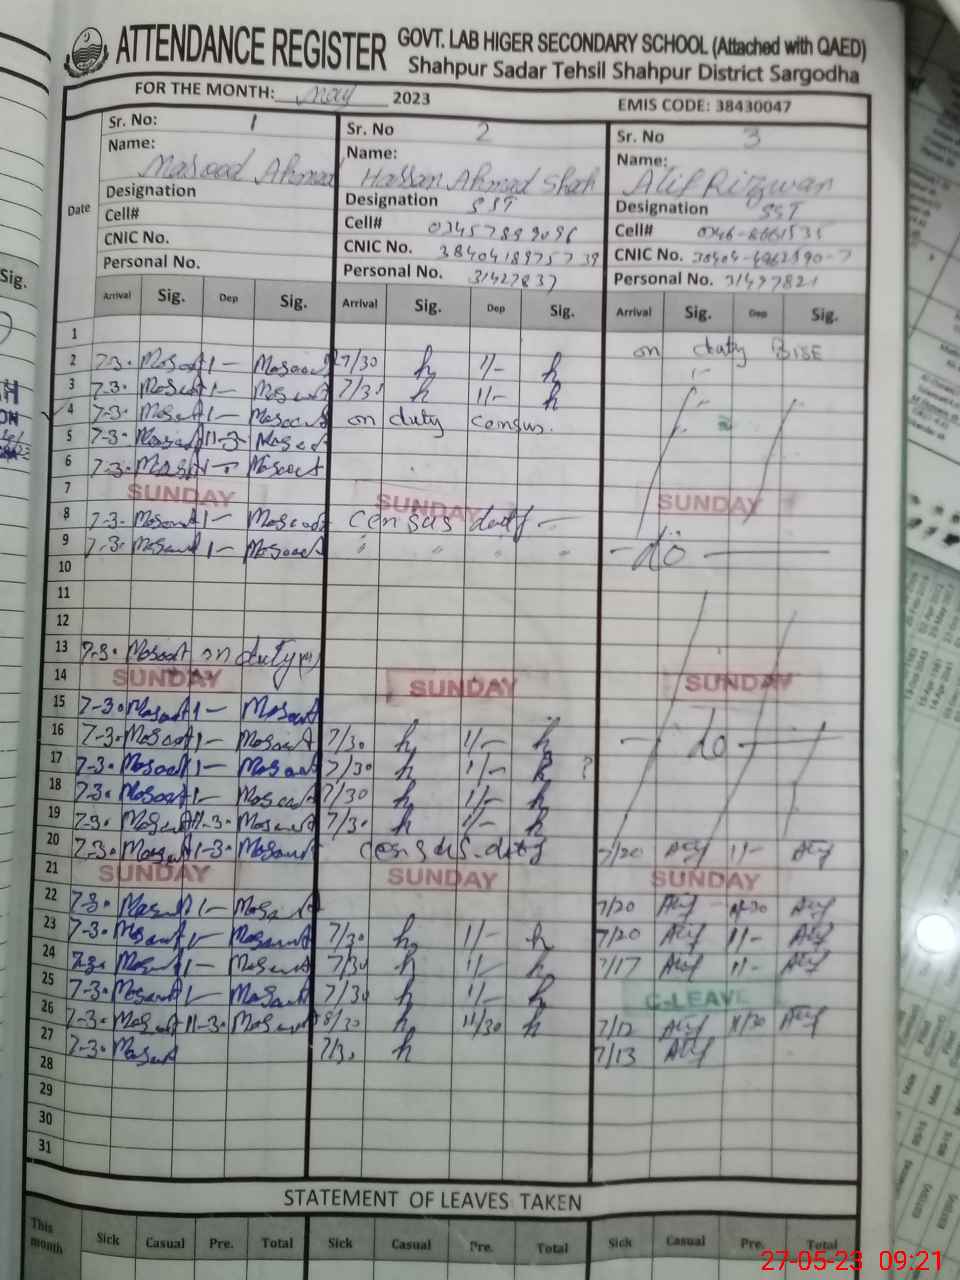 ATTENDANCE REGISTER GOVT. LAB HIGER SECONDARY SCHOOL (Attached with QAED)
Shahpur Sadar Tehsil Shahpur District Sargodha
FOR THE MONTH: May 2023 EMIS CODE: 38430047
Sr. No: 1 Sr. No 2 Sr. No 3
Name: Masood Ahmad Name: Hassan Ahmad Shah Name: Atif Rizwan
Designation Designation SST Designation SST
Cell# Cell# Cell#
CNIC No. CNIC No. CNIC No.
Personal No. Personal No. 31427837 Personal No. 31497821
Date Arrival Sig. Dep Sig. Arrival Sig. Dep Sig. Arrival Sig. Dep Sig.
1 on duty BISE
2 7-3. Masood 1- Masood 7/30 h 11/- h
3 7-3. Masood 1- Masood 7/30 h 11/- h
4 7-3. Masood 1- Masood on duty census.
5 7-3. Masood 11-3 Masood
6 7-3. Masood 1- Masood
7 SUNDAY SUNDAY SUNDAY
8 7-3. Masood 1- Masood census duty
9 7-3. Masood 1- Masood " " " " do
10
11
12
13 7-3. Masood on duty
14 SUNDAY SUNDAY SUNDAY
15 7-3. Masood 1- Masood
16 7-3. Masood 1- Masood 7/30 h 1/- h do
17 7-3. Masood 1- Masood 7/30 h 1/- h ?
18 7-3. Masood 1- Masood 7/30 h 1/- h
19 7-3. Masood 11-3. Masood 7/30 h 1/- h
20 7-3. Masood 1-3. Masood census duty 7/20 Atif 11- Atif
21 SUNDAY SUNDAY SUNDAY
22 7-3. Masood 1- Masood 7/20 Atif Atif
23 7-3. Masood 1- Masood 7/30 h 1/- h 7/20 Atif 11- Atif
24 7-3. Masood 1- Masood 7/30 h 1/- h 7/17 Atif 11- Atif
25 7-3. Masood 1- Masood 7/30 h 1/- h C-LEAVE
26 7-3. Masood 11-3. Masood 8/30 h 11/30 h 7/12 Atif 11/30 Atif
27 7-3. Masood 7/30 h 7/13 Atif
28
29
30
31
STATEMENT OF LEAVES TAKEN
This month Sick Casual Pre. Total Sick Casual Pre. Total Sick Casual Pre. Total
27-05-23 09:21